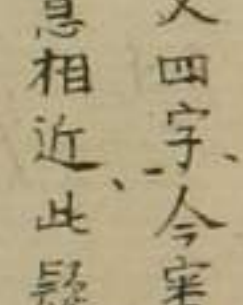 四字、今寀
息相近、此疑